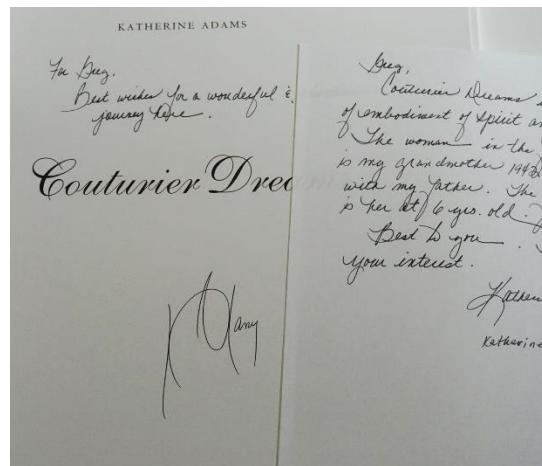 KATHERINE ADAMS
For Greg,
Best wishes for a wonderful &
journey here.
Couturier Drea
Greg,
Couturier Dreams
of embodiment of spirit an
The woman in the
is my grandmother 1940s
with my father. The
is her at 6 yrs. old.
Best to you
your interest.
Katherine